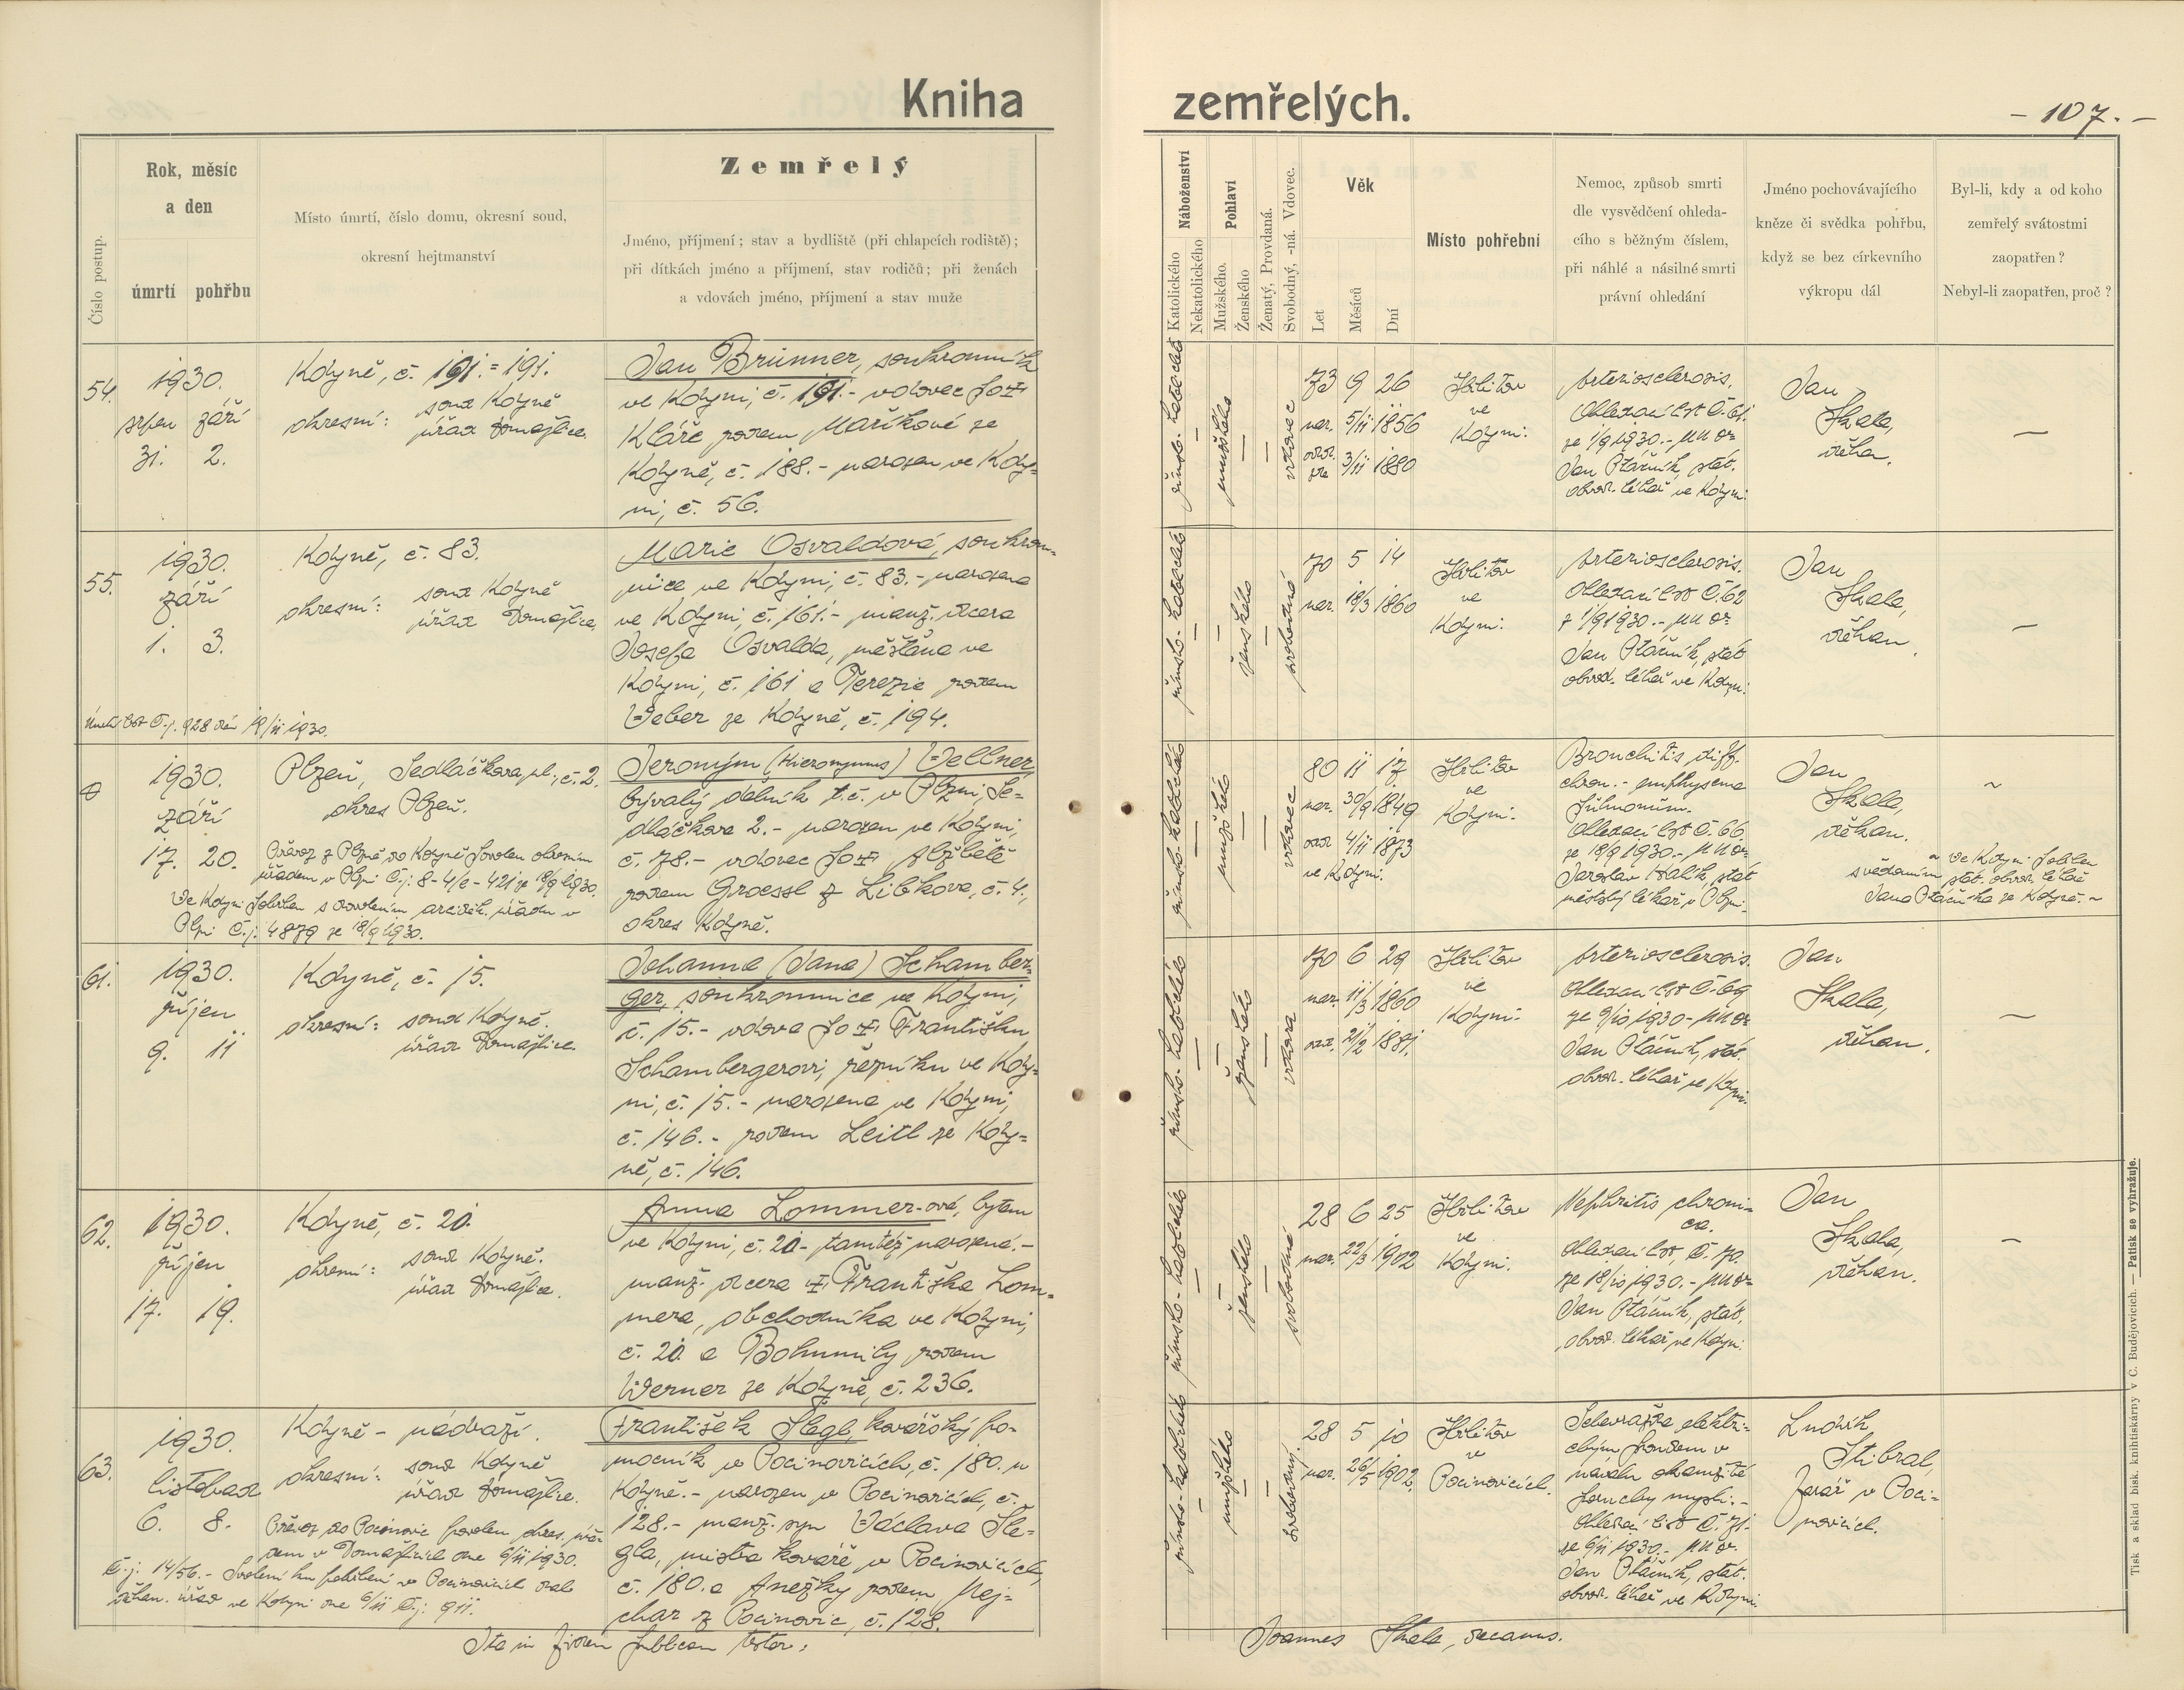 Kniha zemřelých.
- 107. -
Číslo postup.
Rok, měsíc
a den
úmrtí pohřbu
Místo úmrtí, číslo domu, okresní soud,
okresní hejtmanství
Zemřelý
Jméno, příjmení; stav a bydliště (při chlapcích rodiště);
při dítkách jméno a příjmení, stav rodičů; při ženách
a vdovách jméno, příjmení a stav muže
Náboženství
Katolického
Nekatolického
Pohlaví
Mužského.
Ženského
Ženatý, Provdaná.
Svobodný, -ná. Vdovec.
Věk
Let
Měsíců
Dní
Místo pohřební
Nemoc, způsob smrti
dle vysvědčení ohleda-
cího s běžným číslem,
při náhlé a násilné smrti
právní ohledání
Jméno pochovávajícího
kněze či svědka pohřbu,
když se bez církevního
výkropu dál
Byl-li, kdy a od koho
zemřelý svátostmi
zaopatřen?
Nebyl-li zaopatřen, proč?
54.
1930.
srpen září
31. 2.
Kdyně, č. 191. = 191.
okresní: soud Kdyně
úřad Domažlice.
Jan Brunner, soukromník
ve Kdyni, č. 191.- vdovec po
Kláře rodem Maříkové ze
Kdyně, č. 188.- narozen ve Kdy=
ni, č. 56.
římsko-katolické
mužského
vdovec
73 9 26
nar. 5/11 1856
3/11 1880
Hřbitov
ve
Kdyni.
Arteriosclerosis.
Ohledací list č. 61.
ze 1/9 1930.- MUDr
Jan Ptáčník, stát.
obvod. lékař ve Kdyni.
Jan
Skala,
děkan.
—
55.
1930.
září
1. 3.
Kdyně, č. 83.
okresní: soud Kdyně
úřad Domažlice.
Marie Osvaldová, soukrom=
nice ve Kdyni, č. 83.- narozena
ve Kdyni, č. 161.- manž. dcera
Josefa Osvalda, měšťana ve
Kdyni, č. 161 a Terezie rodem
Weber ze Kdyně, č. 194.
Úmrtní list č.j. 928 dán 19/11 1930.
římsko-katolické
ženského
svobodná
70 5 14
nar. 18/3 1860
Hřbitov
ve
Kdyni.
Arteriosclerosis.
Ohledací list č. 62
z 1/9 1930.- MUDr
Jan Ptáčník, stát.
obvod. lékař ve Kdyni.
Jan
Skala,
děkan.
—
1930.
září
17. 20.
Plzeň, Sedláčkova ul., č. 2.
okres Plzeň.
Převoz z Plzně do Kdyně povolen okresním
úřadem v Plzni č.j. 8-4/c-421 ze 18/9 1930.
Ve Kdyni pohřben s dovolením arciděk. úřadu v
Plzni č.j. 4879 ze 18/9 1930.
Jeroným (Hieronymus) Wellner,
bývalý dělník t.č. v Plzni, Se=
dláčkova 2.- narozen ve Kdyni,
č. 78.- vdovec po Alžbětě
rodem Groessl z Libkova, č. 4.,
okres Kdyně.
římsko-katolické
mužského
vdovec
80 11 17.
nar. 30/9 1849
4/11 1873
ve Kdyni.
Hřbitov
ve
Kdyni.
Bronchitis diff.
chron.- emphysema
pulmonum.
Ohledací list č. 66.
ze 18/9 1930.- MUDr
Jaroslav Halík, stát.
městský lékař v Plzni.
Jan
Skala,
děkan.
~
~ Ve Kdyni pohřben
svědomím stát. obvod. lékaře
Jana Ptáčníka ze Kdyně. ~
61.
1930.
říjen
9. 11
Kdyně, č. 15.
okresní: soud Kdyně.
úřad Domažlice.
Johanna (Jana) Schamber=
ger, soukromnice ve Kdyni,
č. 15.- vdova po Františku
Schambergerovi, řezníku ve Kdy=
ni, č. 15.- narozena ve Kdyni,
č. 146.- rodem Leitl ze Kdy=
ně, č. 146.
římsko-katolické
ženského
vdova
70 6 29
nar. 11/3 1860
21/2 1881.
Hřbitov
ve
Kdyni.
Arteriosclerosis.
Ohledací list č. 69
ze 9/10 1930- MUDr
Jan Ptáčník, stát.
obvod. lékař ve Kdyni.
Jan
Skala,
děkan.
—
62.
1930.
říjen
17. 19.
Kdyně, č. 20.
okresní: soud Kdyně.
úřad Domažlice.
Anna Lommer-ová, bytem
ve Kdyni, č. 20- tamtéž narozená.-
manž. dcera Františka Lom=
mera, obchodníka ve Kdyni,
č. 20. a Bohumily rodem
Werner ze Kdyně, č. 236.
římsko-katolické
ženského
svobodná
28 6 25
nar. 22/3 1902
Hřbitov
ve
Kdyni.
Nephritis chroni=
ca.
Ohledací list, č. 70.
ze 18/10 1930.- MUDr
Jan Ptáčník, stát.
obvod. lékař ve Kdyni.
Jan
Skala,
děkan.
—
63.
1930.
listopad
6. 8.
Kdyně - nádraží.
okresní: soud Kdyně
úřad Domažlice.
Převoz do Pocinovic povolen okres. úřa=
dem v Domažlicích dne 6/11 1930.
Č.j. 14/56.- Svolení ku pohřbení v Pocinovicích dal
děkan. úřad ve Kdyni dne 6/11 č.j. 911.
František Šlegl, kovářský po=
mocník v Pocinovicích, č. 180. u
Kdyně.- narozen v Pocinovicích, č.
128.- manž. syn Václava Šle=
gla, mistra kováře v Pocinovicích,
č. 180. a Anežky rodem Nej=
char z Pocinovic, č. 128.
římsko-katolické
mužského
svobodný.
28 5 10
nar. 26/5 1902.
Hřbitov
v
Pocinovicích.
Sebevražda elektri=
ckým proudem v
návalu okamžité
poruchy mysli.-
Ohledací list č. 71.
ze 6/11 1930.- MUDr.
Jan Ptáčník, stát.
obvod. lékař ve Kdyni.
Ludvík
Stibral,
farář v Poci=
novicích.
Ita in fidem publicam testor:
Joannes Skala, decanus.
Tisk a sklad bisk. knihtiskárny v Č. Budějovicích. — Patisk se vyhražuje.